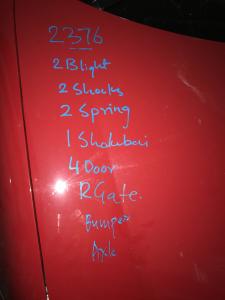 2376
2 Blight
2 Shocks
2 Spring
1 Shokubai
4 Door
R Gate.
Bumper
Axle